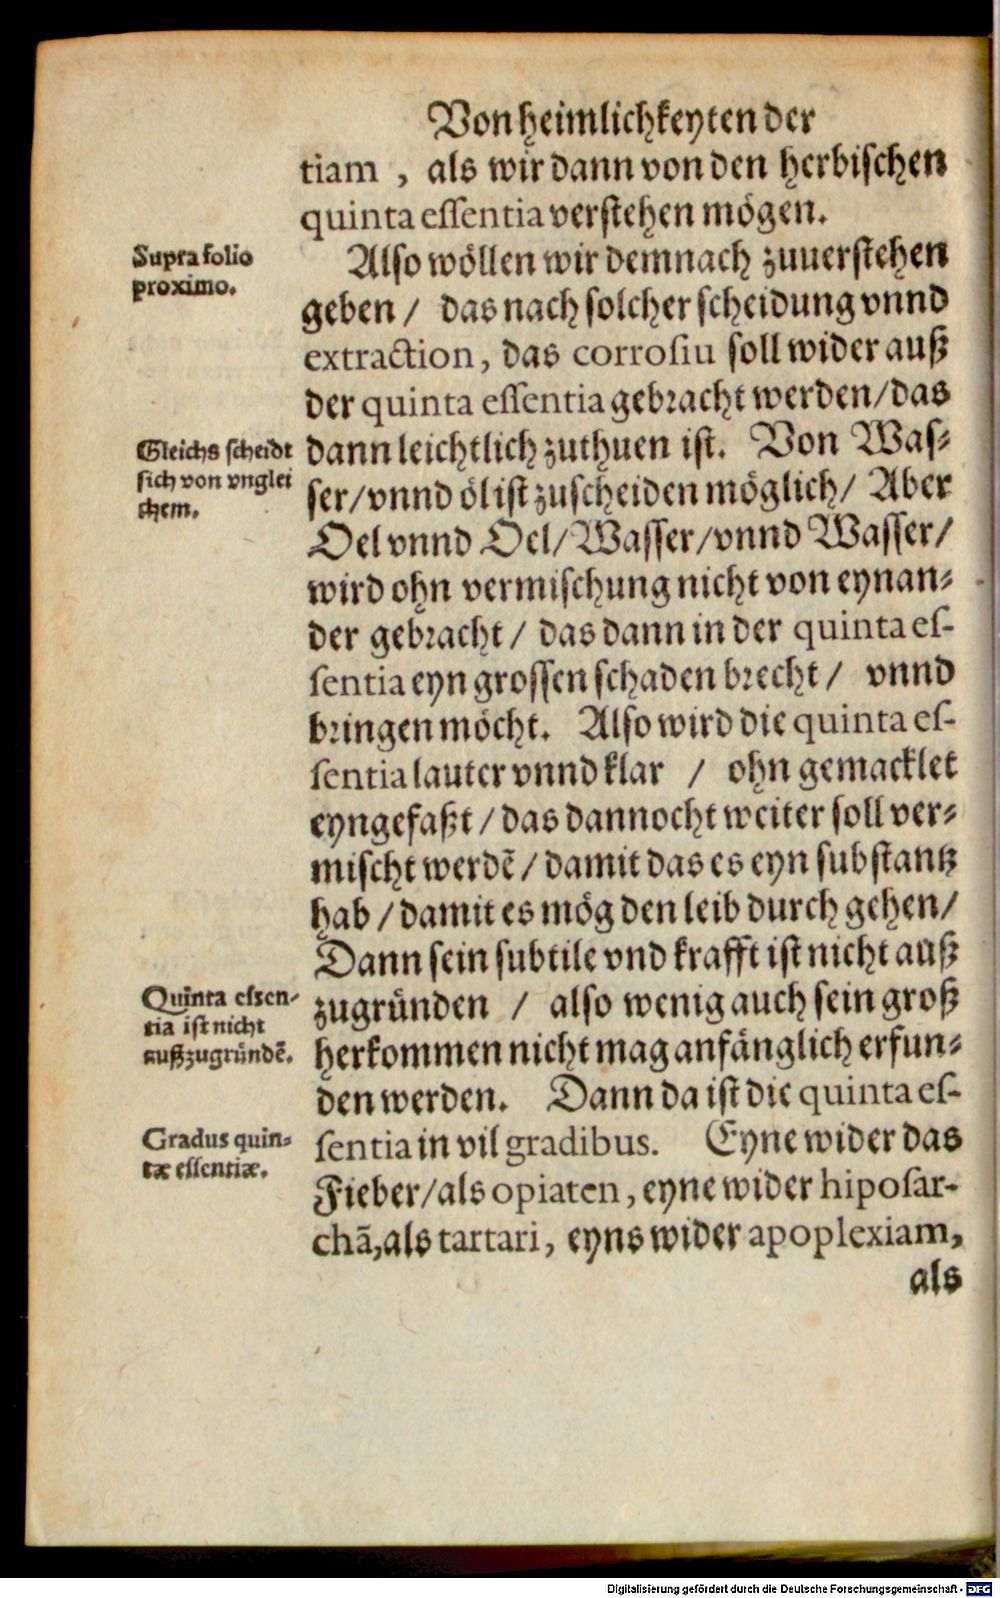 Von heimlichkeyten der
tiam , als wir dann von den herbischen
quinta eſſentia verſtehen mögen.
Supra folio
proximo.
Alſo wöllen wir demnach zuuerſtehen
geben / das nach ſolcher ſcheidung vnnd
extraction, das corroſiu ſoll wider auß
der quinta eſſentia gebracht werden/das
Gleichs ſcheidt
ſich von vnglei
chem.
dann leichtlich zuthuen iſt. Von Waſ-
ſer/vnnd öl iſt zuſcheiden möglich/ Aber
Oel vnnd Oel/Waſſer/vnnd Waſſer/
wird ohn vermiſchung nicht von eynan-
der gebracht / das dann in der quinta eſ-
ſentia eyn groſſen ſchaden brecht / vnnd
bringen möcht. Alſo wird die quinta eſ-
ſentia lauter vnnd klar / ohn gemacklet
eyngefaßt / das dannocht weiter ſoll ver-
miſcht werdē / damit das es eyn ſubſtantz
hab / damit es mög den leib durch gehen/
Dann ſein ſubtile vnd krafft iſt nicht auß
Quinta eſſen-
tia iſt nicht
außzugründē.
zugründen / alſo wenig auch ſein groß
herkommen nicht mag anfänglich erfun-
den werden. Dann da iſt die quinta eſ-
Gradus quin-
tæ eſſentiæ.
ſentia in vil gradibus. Eyne wider das
Fieber/als opiaten, eyne wider hipoſar-
chā,als tartari, eyns wider apoplexiam,
als
Digitalisierung gefördert durch die Deutsche Forschungsgemeinschaft - DFG